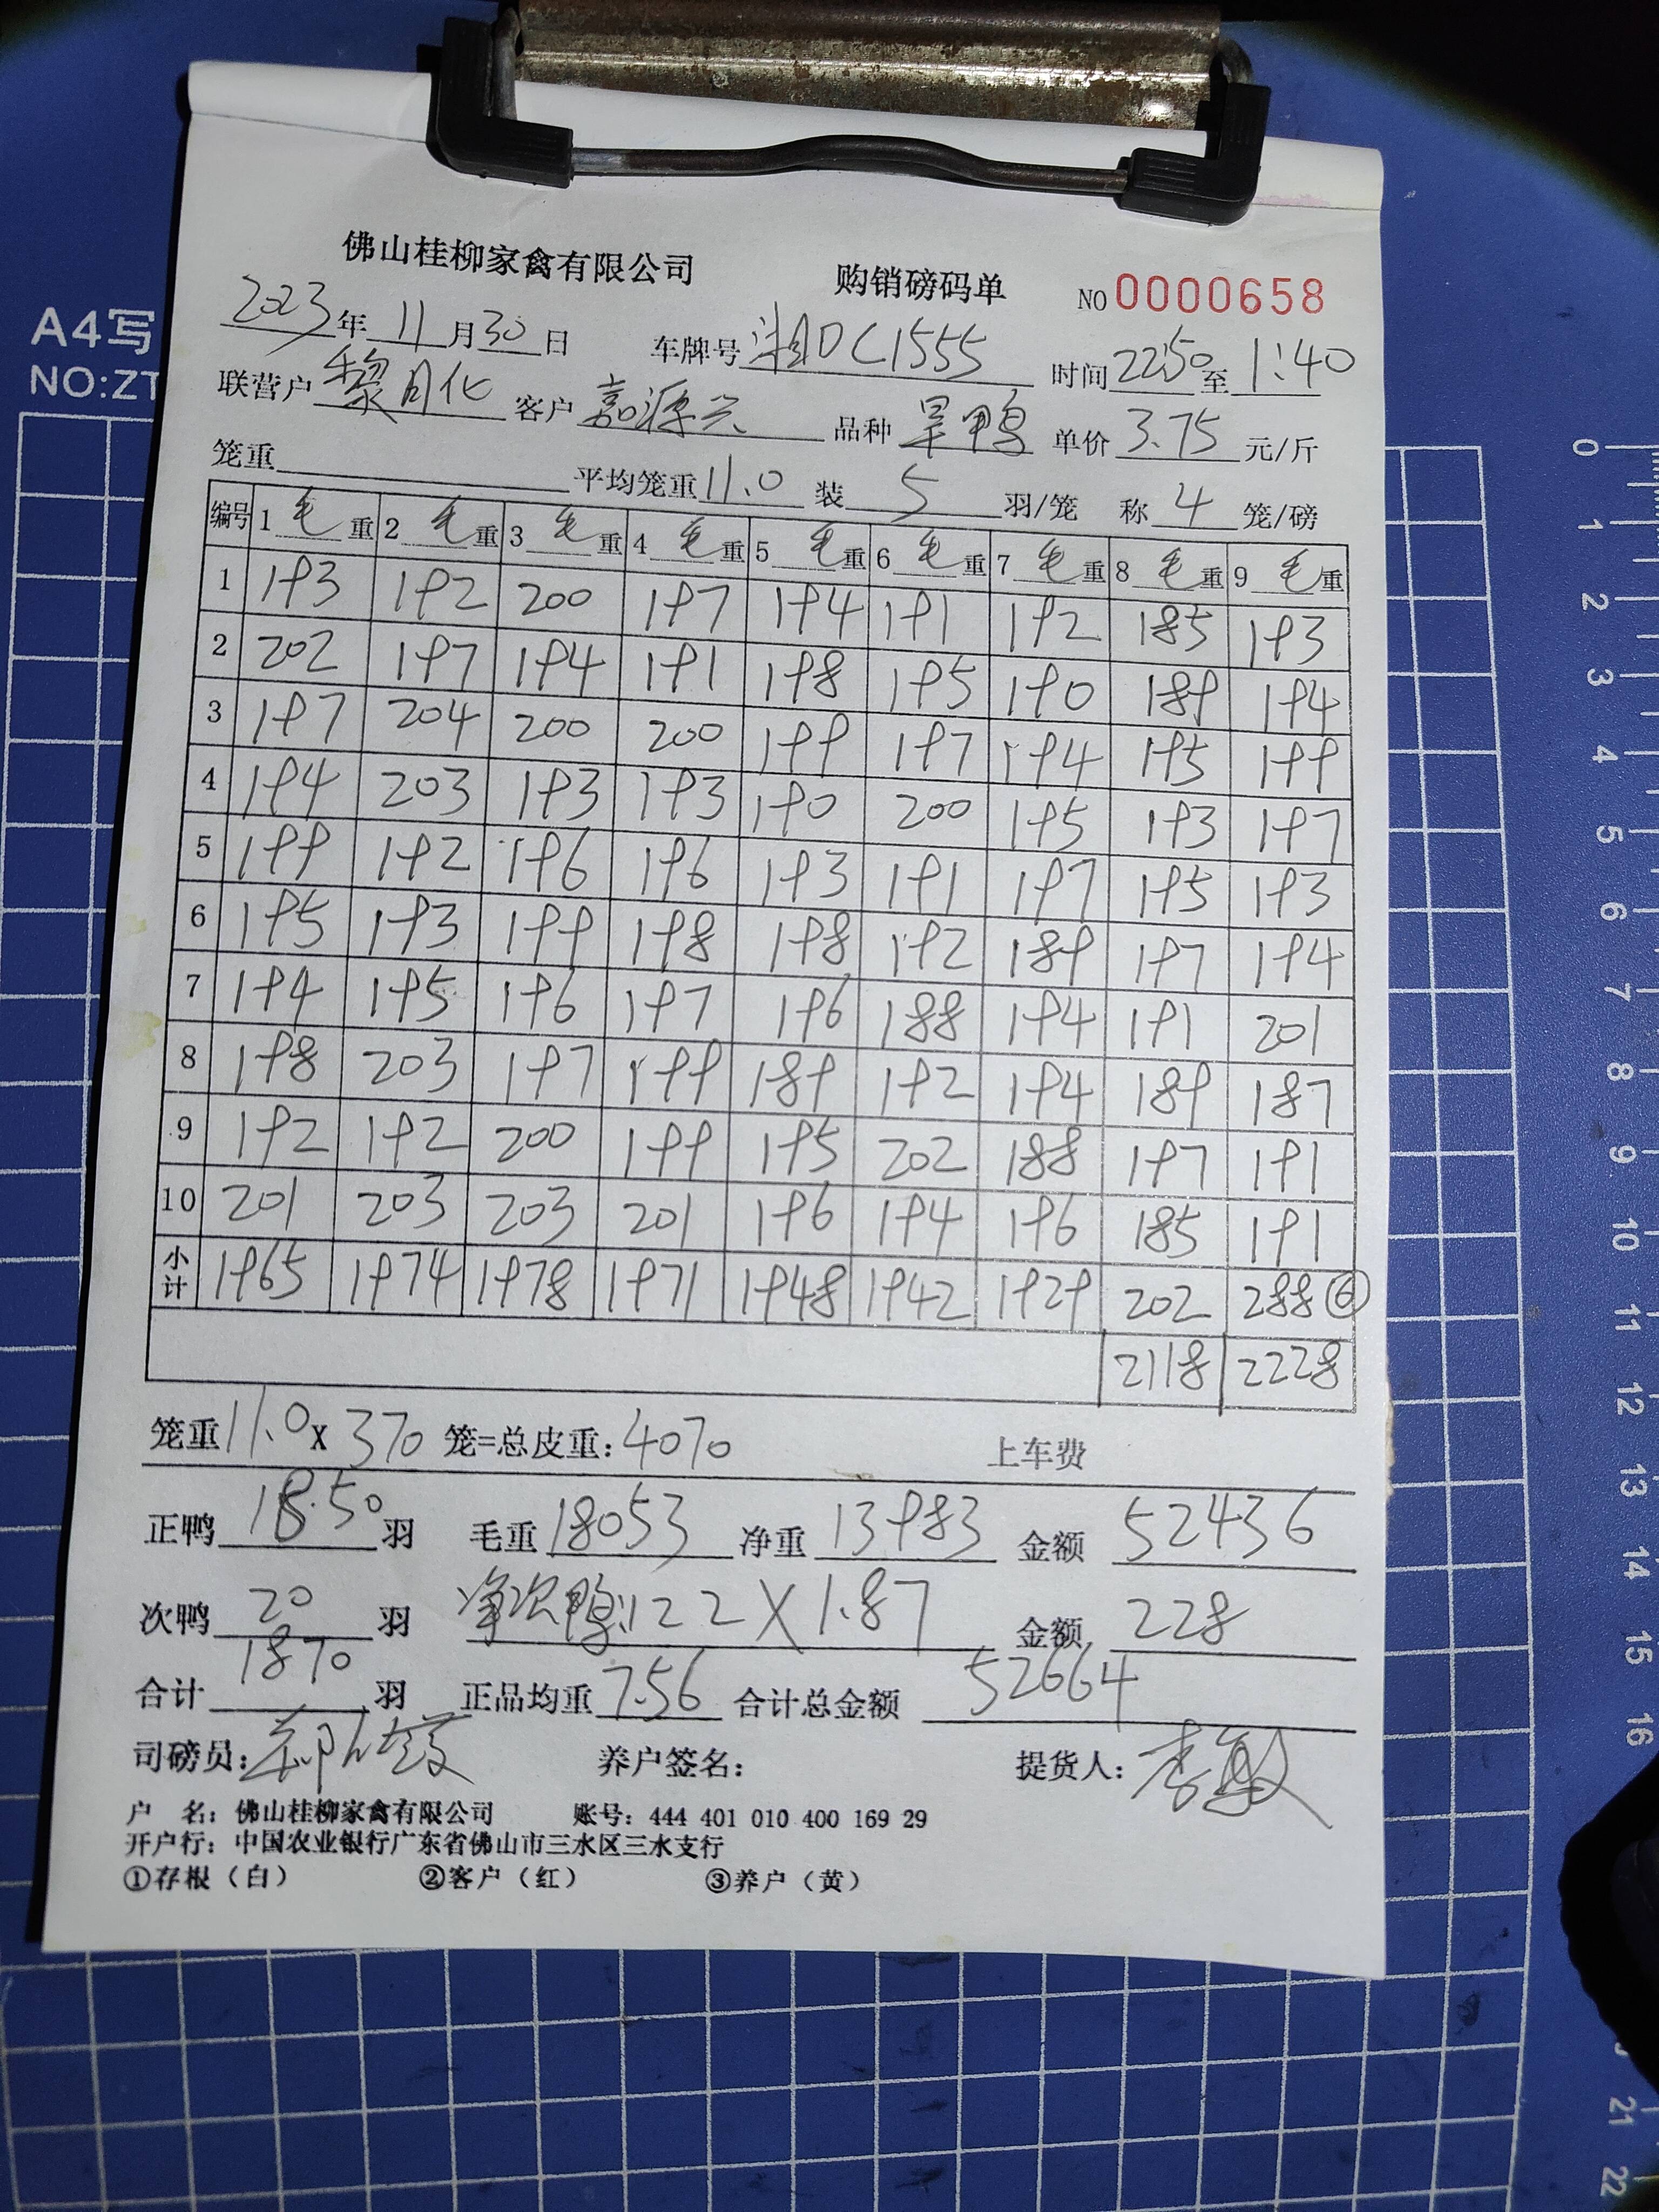 A4写
NO:ZT
佛山桂柳家禽有限公司 购销磅码单 NO 0000658
2023年 11月30日 车牌号 湘DC1555 时间 22:50 至 1:40
联营户 黎月化 客户 嘉源兴 品种 旱鸭 单价 3.75 元/斤
笼重 平均笼重 11.0 装 5 羽/笼 称 4 笼/磅
编号 1 毛重 2 毛重 3 毛重 4 毛重 5 毛重 6 毛重 7 毛重 8 毛重 9 毛重
1 193 192 200 197 194 191 192 185 193
2 202 197 194 191 198 195 190 189 194
3 197 204 200 200 199 197 194 195 199
4 194 203 193 193 190 200 195 193 197
5 199 192 196 196 193 191 197 195 193
6 195 193 199 198 198 192 189 197 194
7 194 195 196 197 196 188 194 191 201
8 198 203 197 199 189 192 194 189 187
9 192 192 200 199 195 202 188 197 191
10 201 203 203 201 196 194 196 185 191
小计 1965 1974 1978 1971 1948 1942 1929 202 288⑥
2118 2228
笼重 11.0 x 370 笼=总皮重: 4070 上车费
正鸭 1850 羽 毛重 18053 净重 13983 金额 52436
次鸭 20 羽 净次鸭:122 X 1.87 金额 228
合计 1870 羽 正品均重 7.56 合计总金额 52664
司磅员: 养户签名: 提货人: 李敏
户 名: 佛山桂柳家禽有限公司 账号: 444 401 010 400 169 29
开户行: 中国农业银行广东省佛山市三水区三水支行
①存根(白) ②客户(红) ③养户(黄)
0
1
2
3
4
5
6
7
8
9
10
11
12
13
14
15
16
21
22